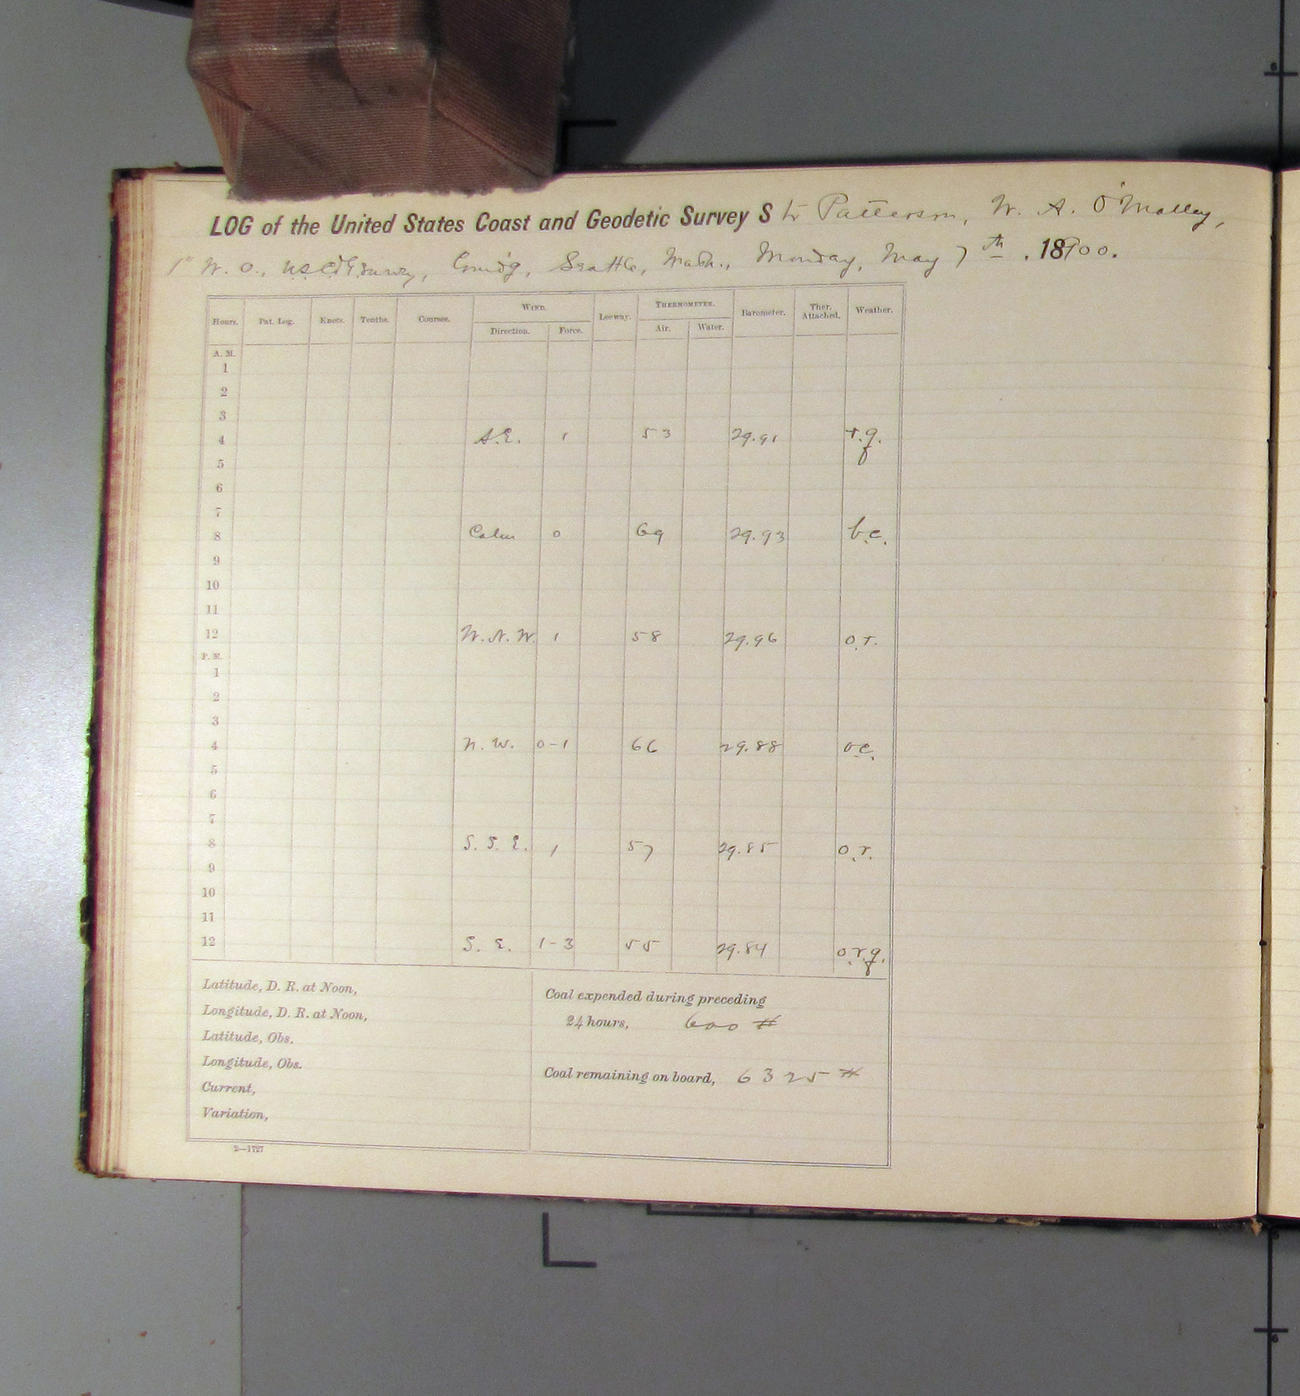 LOG of the United States Coast and Geodetic Survey Str Patterson, W. A. O'Malley,
1st W. O., U.S.C. & G. Survey, Comd'g, Seattle, Wash., Monday, May 7th, 18900.
Hours. Pat. Log. Knots. Tenths. Courses. WIND. Leeway. THERMOMETER. Barometer. Ther. Attached. Weather.
Direction. Force. Air. Water.
A. M.
1
2
3
4 S.E. 1 53 29.91 r.q.
5
6
7
8 Calm 0 69 29.93 b.c.
9
10
11
12 W.N.W. 1 58 29.96 o.r.
P. M.
1
2
3
4 N.W. 0-1 66 29.88 o.c.
5
6
7
8 S.S.E. 1 57 29.85 o.r.
9
10
11
12 S.E. 1-3 55 29.84 o.r.q.
Latitude, D. R. at Noon,
Longitude, D. R. at Noon,
Latitude, Obs.
Longitude, Obs.
Current,
Variation,
Coal expended during preceding
24 hours, 600 #
Coal remaining on board, 6325 #
2—1727